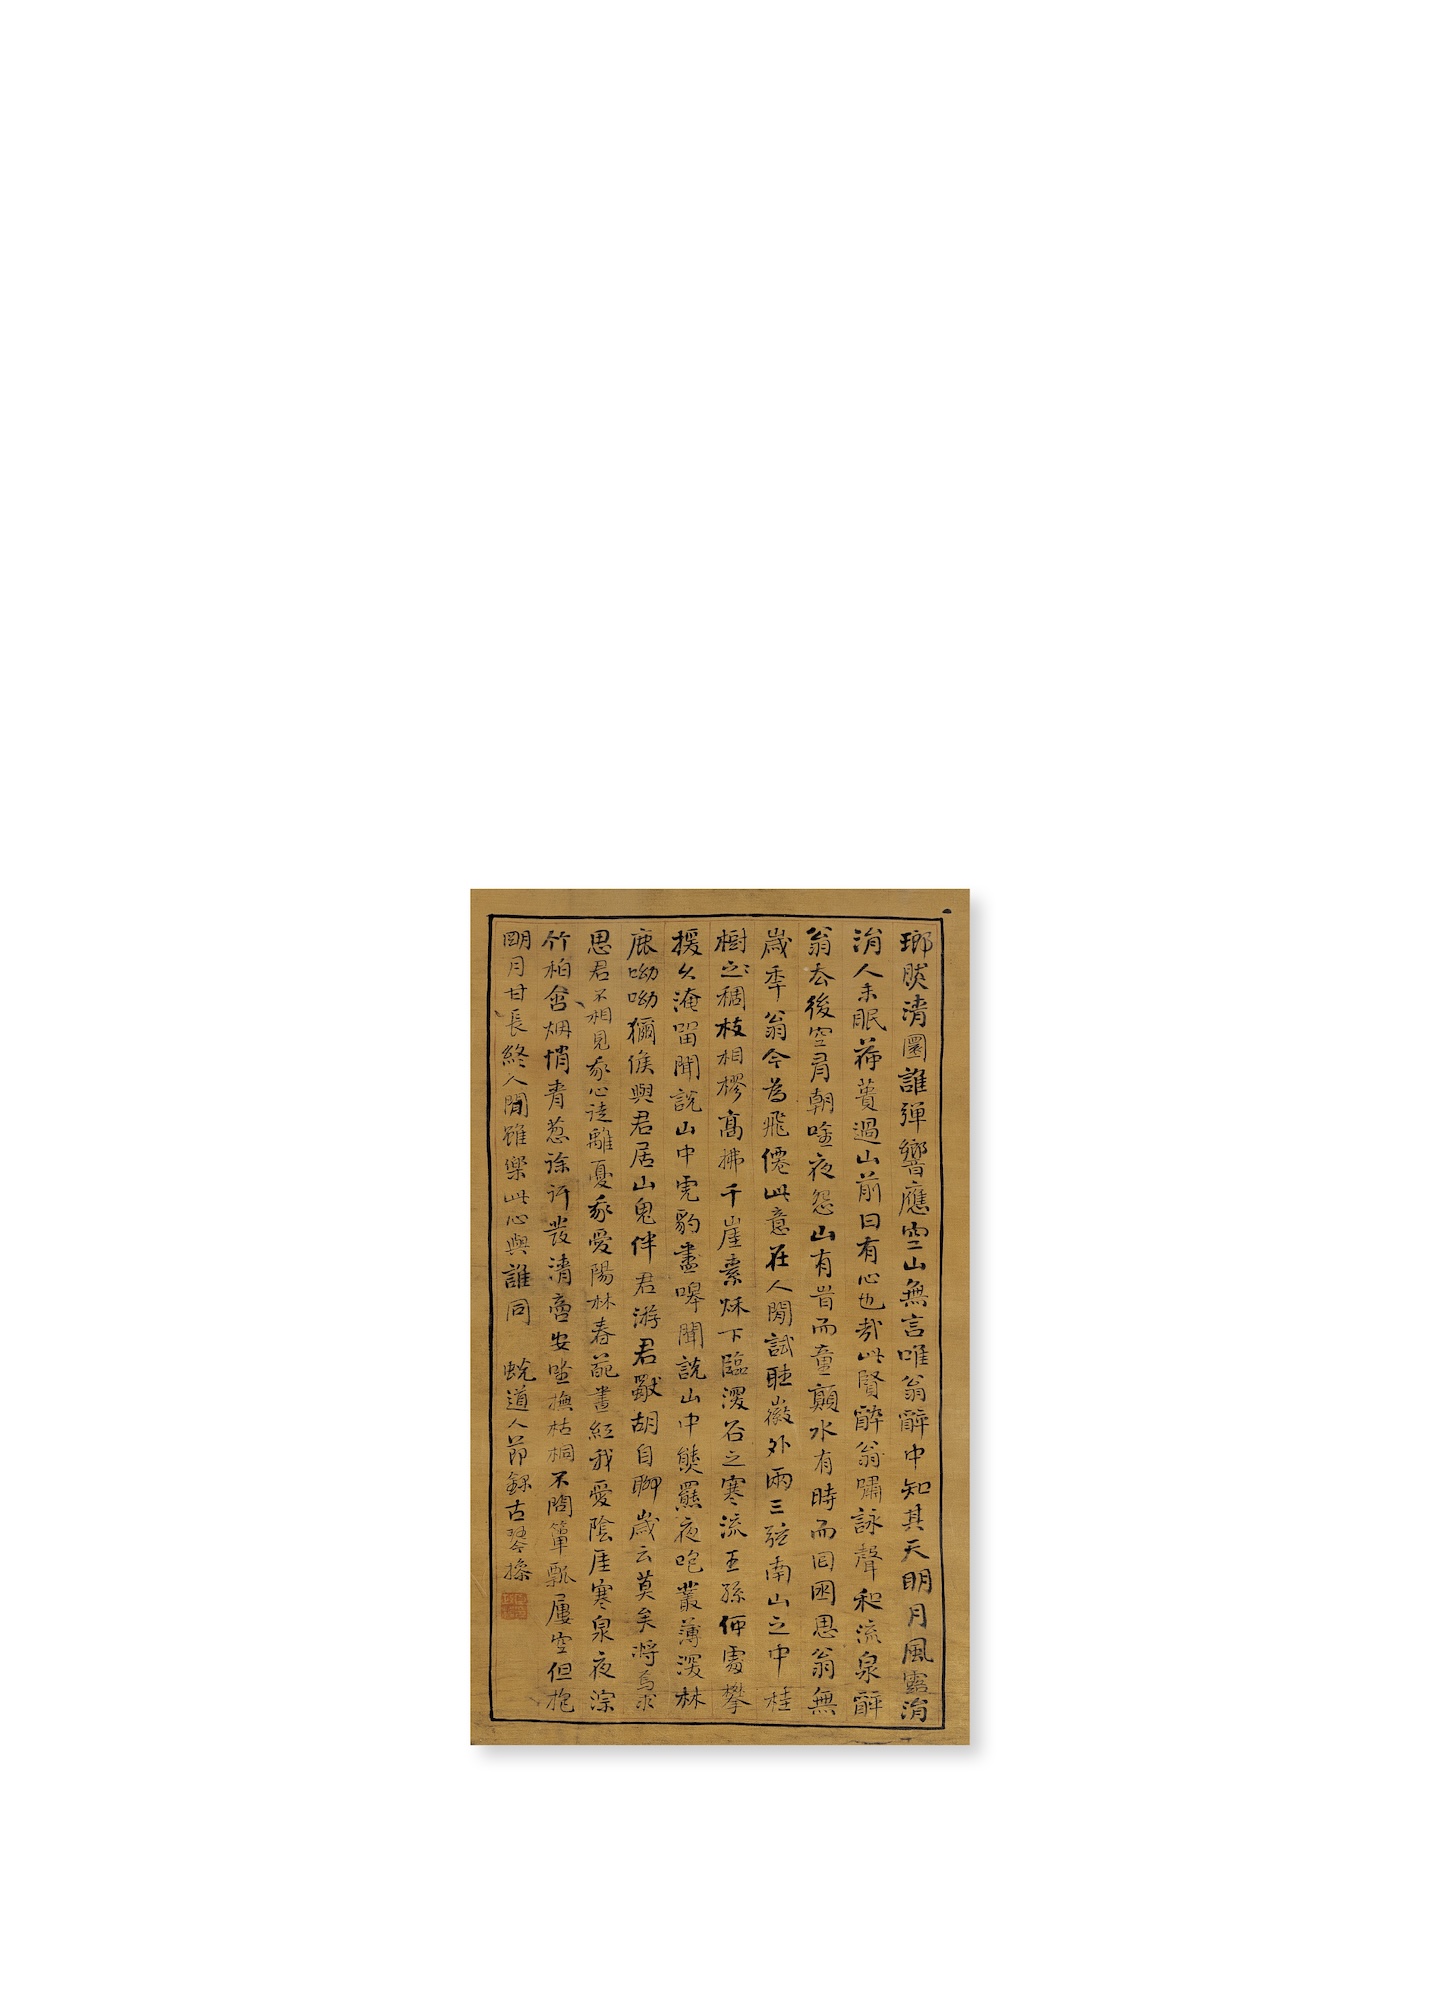 琅然清圜誰彈響應空山無言唯翁醉中知其天明月風露涓
涓人未眠荷蕢過山前曰有心也哉此賢醉翁嘯詠聲和流泉醉
翁去後空有朝唫夜怨山有旹而童顛水有時而回困思翁無
歲年翁今為飛僊此意在人閒試聽徽外兩三弦南山之中桂
樹之〻稠枝相樛高拂千崖素秌下臨深谷之寒流王孫何處攀
援久淹留聞說山中虎豹晝嘷聞說山中熊羆夜咆叢薄深林
鹿呦呦獼猴與君居山鬼伴君游君獸胡自聊歲云莫矣將焉求
思君不相見我心徒離憂我愛陽林春葩晝紅我愛陰厓寒泉夜淙
竹柏含烟悄青蔥徐行發清商安坐撫枯桐不問簞瓢屢空但抱
明月甘長終人閒雖樂此心與誰同 蛻道人節錄古琴操